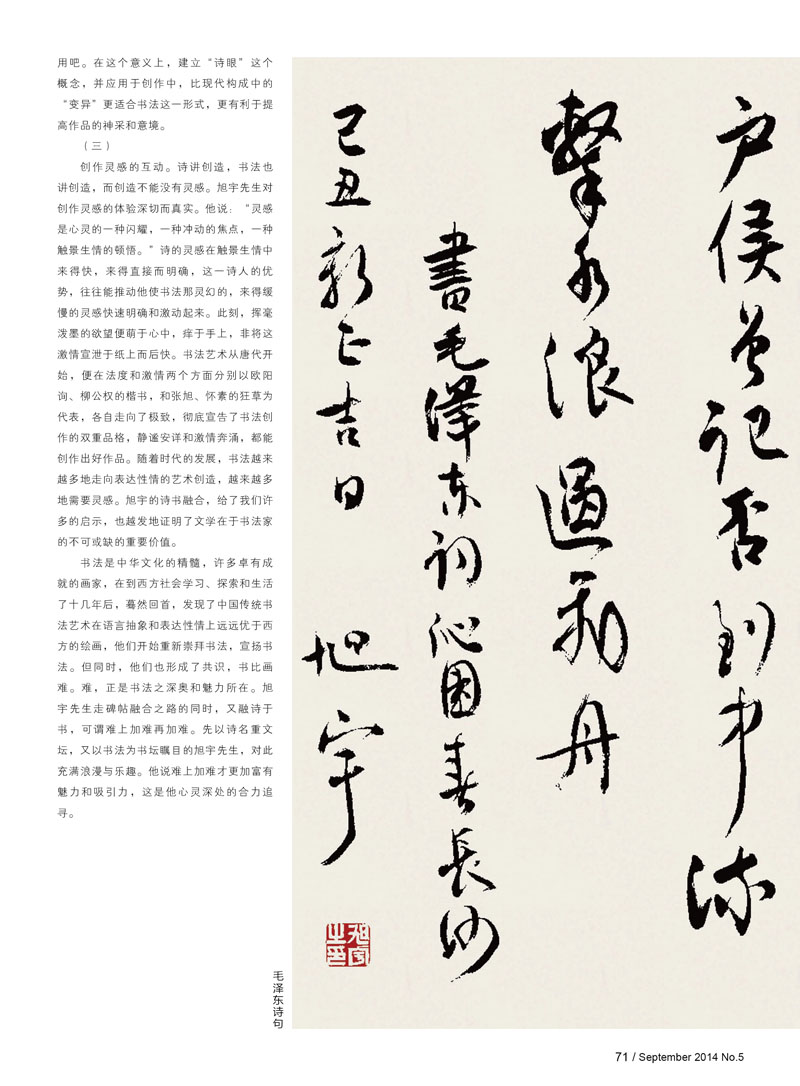 用吧。在这个意义上，建立“诗眼”这个
概念，并应用于创作中，比现代构成中的
“变异”更适合书法这一形式，更有利于提
高作品的神采和意境。
（三）
创作灵感的互动。诗讲创造，书法也
讲创造，而创造不能没有灵感。旭宇先生对
创作灵感的体验深切而真实。他说：“灵感
是心灵的一种闪耀，一种冲动的焦点，一种
触景生情的顿悟。”诗的灵感在触景生情中
来得快，来得直接而明确，这一诗人的优
势，往往能推动他使书法那灵幻的，来得缓
慢的灵感快速明确和激动起来。此刻，挥毫
泼墨的欲望便萌于心中，痒于手上，非将这
激情宣泄于纸上而后快。书法艺术从唐代开
始，便在法度和激情两个方面分别以欧阳
询、柳公权的楷书，和张旭、怀素的狂草为
代表，各自走向了极致，彻底宣告了书法创
作的双重品格，静谧安详和激情奔涌，都能
创作出好作品。随着时代的发展，书法越来
越多地走向表达性情的艺术创造，越来越多
地需要灵感。旭宇的诗书融合，给了我们许
多的启示，也越发地证明了文学在于书法家
的不可或缺的重要价值。
书法是中华文化的精髓，许多卓有成
就的画家，在到西方社会学习、探索和生活
了十几年后，蓦然回首，发现了中国传统书
法艺术在语言抽象和表达性情上远远优于西
方的绘画，他们开始重新崇拜书法，宣扬书
法。但同时，他们也形成了共识，书比画
难。难，正是书法之深奥和魅力所在。旭
宇先生走碑帖融合之路的同时，又融诗于
书，可谓难上加难再加难。先以诗名重文
坛，又以书法为书坛瞩目的旭宇先生，对此
充满浪漫与乐趣。他说难上加难才更加富有
魅力和吸引力，这是他心灵深处的合力追
寻。
户侯曾记否到中流
擊水浪遏飛舟
書毛泽东词沁园春長沙
己丑新正吉日
旭宇
旭宇之印
毛泽东诗句
71 / September 2014 No.5